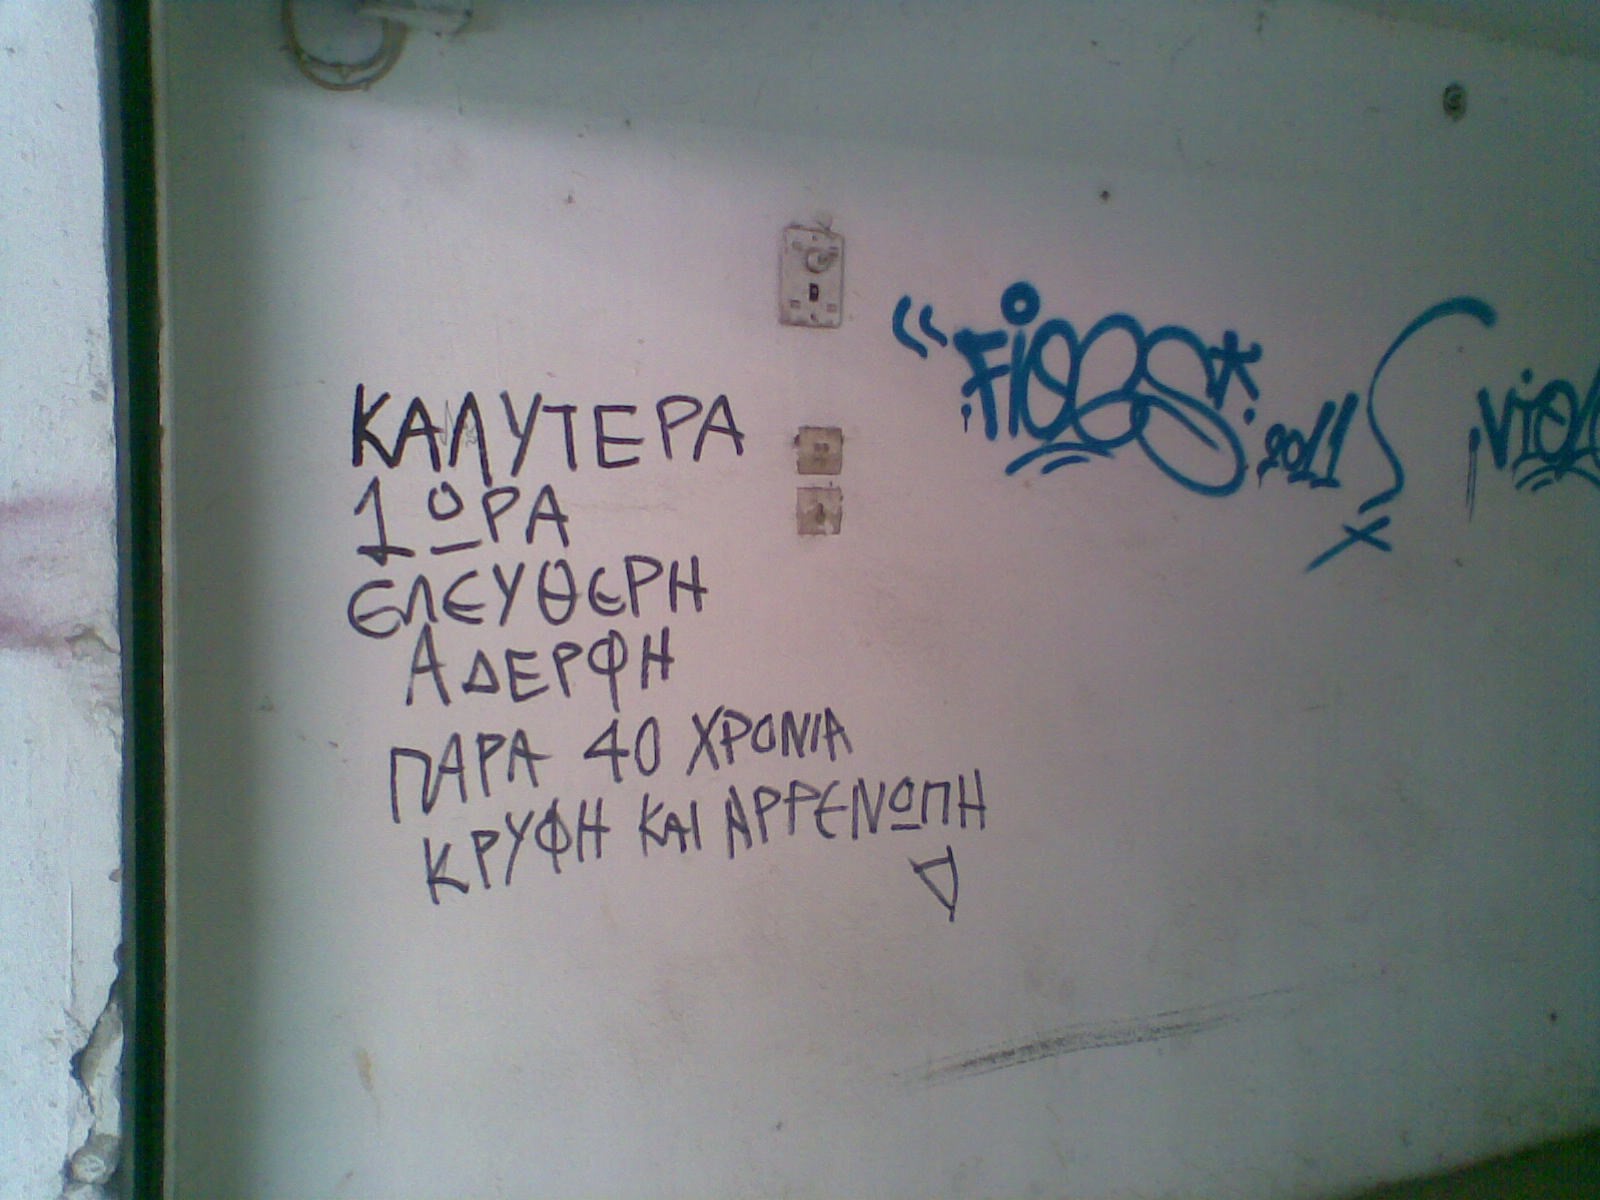 ΚΑΛΥΤΕΡΑ
1 ΩΡΑ
ΕΛΕΥΘΕΡΗ
ΑΔΕΡΦΗ
ΠΑΡΑ 40 ΧΡΟΝΙΑ
ΚΡΥΦΗ ΚΑΙ ΑΡΡΕΝΩΠΗ
2011